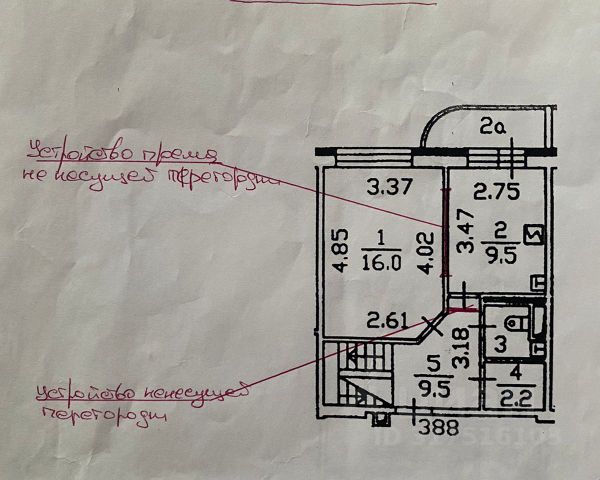 2а
Устройство
не несущей
3.37
2.75
4.85
1
16.0
4.02
3.47
2
9.5
2.61
3.18
3
5
9.5
4
2.2
Устройство ненесущей
388